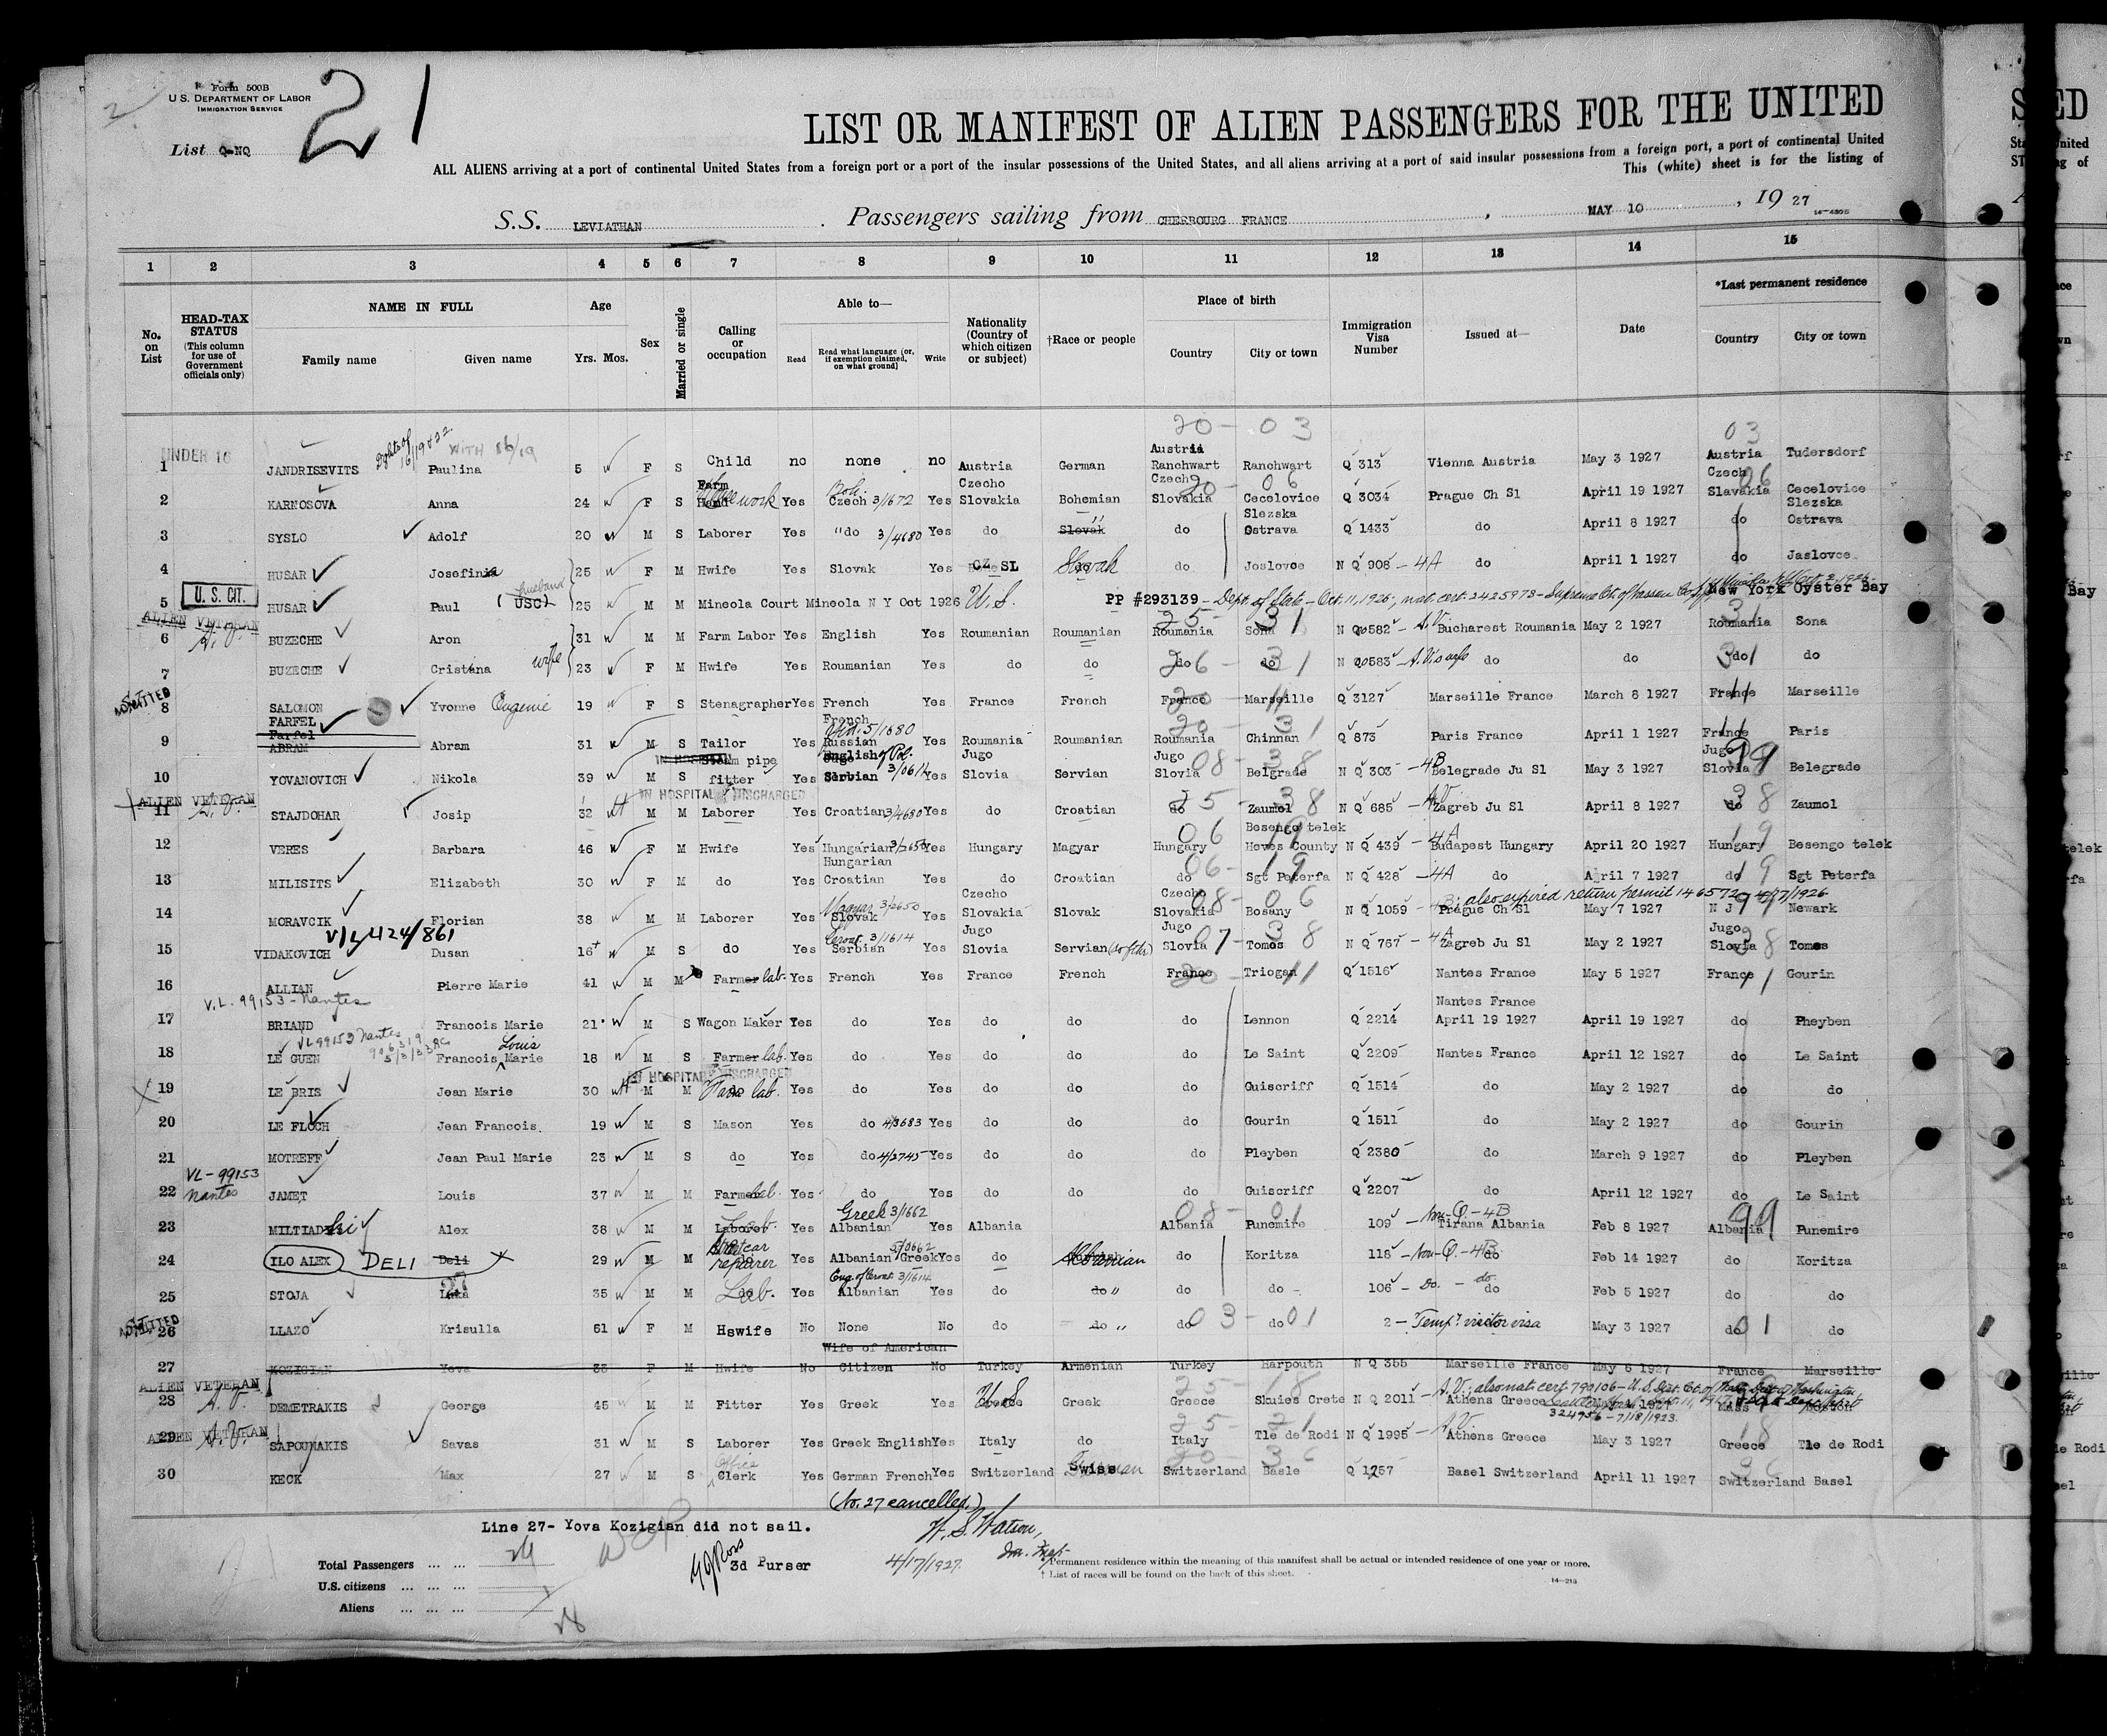 Form 500B
U.S. DEPARTMENT OF LABOR
IMMIGRATION SERVICE
21
List Q-NQ
LIST OR MANIFEST OF ALIEN PASSENGERS FOR THE UNITED
ALL ALIENS arriving at a port of continental United States from a foreign port or a port of the insular possessions of the United States, and all aliens arriving at a port of said insular possessions from a foreign port, a port of continental United
This (white) sheet is for the listing of
S.S. LEVIATHAN Passengers sailing from CHERBOURG FRANCE, MAY 10, 19 27
1 2 3 4 5 6 7 8 9 10 11 12 13 14 15
No. on List
HEAD-TAX STATUS (This column for use of Government officials only)
NAME IN FULL Family name Given name
Age Yrs. Mos.
Sex
Married or single
Calling or occupation
Able to— Read Read what language (or, if exemption claimed, on what ground) Write
Nationality (Country of which citizen or subject)
†Race or people
Place of birth Country City or town
Immigration Visa Number
Issued at—
Date
*Last permanent residence Country City or town
20 - 03 03
UNDER 16 WITH 16/19
1 JANDRISEVITS Paulina 5 F S Child no none no Austria German Austria Ranchwart Ranchwart Q 313 Vienna Austria May 3 1927 Austria Tudersdorf
2 KARNOSOVA Anna 24 F S Farm Hand Yes Czech 3/1672 Yes Czecho Slovakia Bohemian Czech Slovakia Cecelovice Q 3034 Prague Ch Sl April 19 1927 Czech Slavakia Cecelovice
3 SYSLO Adolf 20 M S Laborer Yes "do 3/4680 Yes do Slovak do Slezska Ostrava Q 1433 do April 8 1927 do Slezska Ostrava
4 HUSAR Josefina 25 F M Hwife Yes Slovak Yes CZ SL Slovak do Joslovce N Q 908 - 4A do April 1 1927 do Jaslovce
U. S. CIT.
5 HUSAR Paul (husband USC) 25 M M Mineola Court Mineola N Y Oct 1926 U.S. PP #293139 - Dept. of State - Oct. 11, 1926, nat. cert. 2425973 - New York Oyster Bay
ALIEN VETERAN A.V.
6 BUZECHE Aron 31 M M Farm Labor Yes English Yes Roumanian Roumanian Roumania Sona N Q 582 - A.V. Bucharest Roumania May 2 1927 Roumania Sona
7 BUZECHE Cristana wife 23 F M Hwife Yes Roumanian Yes do do do do N Q 583 - A.V's wife do do do do
ADMITTED
8 SALOMON Yvonne Eugenie 19 F S Stenagrapher Yes French Yes France French France Marseille Q 3127 Marseille France March 8 1927 France Marseille
9 FARFEL Farfel ABRAM Abram 31 M S Tailor Yes French Russian Yes Roumania Roumanian Roumania Chinnan Q 873 Paris France April 1 1927 France Paris
10 YOVANOVICH Nikola 39 M S Steam pipe fitter Yes Serbian 3/0614 Yes Jugo Slovia Servian Jugo Slovia Belgrade N Q 303 - 4B Belegrade Ju Sl May 3 1927 Jugo Slovia Belegrade
IN HOSPITAL DISCHARGED
ALIEN VETERAN A.V.
11 STAJDOHAR Josip 32 M M Laborer Yes Croatian 3/4680 Yes do Croatian do Zaumol N Q 685 - A.V. Zagreb Ju Sl April 8 1927 do Zaumol
12 VERES Barbara 46 F M Hwife Yes Hungarian 3/2650 Yes Hungary Magyar Hungary Besengo telek Heves County N Q 439 - 4A Budapest Hungary April 20 1927 Hungary Besengo telek
13 MILISITS Elizabeth 30 F M do Yes Hungarian Croatian Yes do Croatian do Sgt Peterfa N Q 428 - 4A do April 7 1927 do Sgt Peterfa
14 MORAVCIK Florian 38 M M Laborer Yes Magyar 3/2650 Slovak Yes Czecho Slovakia Slovak Czecho Slovakia Bosany N Q 1059 - 4B; also expired return permit 146572 - 4/7/1926 Prague Ch Sl May 7 1927 N J Newark
V/L 424/861
15 VIDAKOVICH Dusan 16 M S do Yes Croat. 3/1614 Serbian Yes Jugo Slovia Servian Jugo Slovia Tomos N Q 767 - 4A Zagreb Ju Sl May 2 1927 Jugo Slovia Tomos
16 ALLIAN Pierre Marie 41 M M Farmer lab. Yes French Yes France French France Triogan Q 1516 Nantes France May 5 1927 France Gourin
V.L. 99153 - Nantes
17 BRIAND Francois Marie 21 M S Wagon Maker Yes do Yes do do do Lennon Q 2214 Nantes France April 19 1927 April 19 1927 do Pheyben
VL 99153 Nantes
18 LE GUEN Francois Louis Marie 18 M S Farmer lab. Yes do Yes do do do Le Saint Q 2209 Nantes France April 12 1927 do Le Saint
IN HOSPITAL DISCHARGED
19 LE BRIS Jean Marie 30 M M Farm lab. Yes do Yes do do do Guiscriff Q 1514 do May 2 1927 do do
20 LE FLOCH Jean Francois 19 M S Mason Yes do 4/3683 Yes do do do Gourin Q 1511 do May 2 1927 do Gourin
21 MOTREFF Jean Paul Marie 23 M S do Yes do 4/2745 Yes do do do Pleyben Q 2380 do March 9 1927 do Pleyben
VL - 99153 Nantes
22 JAMET Louis 37 M M Farmer lab. Yes do Yes do do do Guiscriff Q 2207 do April 12 1927 do Le Saint
23 MILTIADHI Alex 38 M M Laborer Yes Greek 3/1662 Albanian Yes Albania Albania Punemire 109 - Non-Q - 4B Tirana Albania Feb 8 1927 Albania Punemire
24 ILO ALEX DELI Deli 29 M M repairer Yes Albanian Greek Yes do Albanian do Koritza 118 - Non-Q - 4B do Feb 14 1927 do Koritza
25 STOJA 35 M M Lab. Yes Eng. of Croat. 3/1614 Albanian Yes do do " do do 106 - Do. - do. do Feb 5 1927 do do
ADMITTED
26 LLAZO Krisulla 61 F M Hswife No None No do do " do do 2 - Temp. visitor visa May 3 1927 do do
27 KOZIGIAN Yova 33 F M Hwife No Wife of American Citizen No Turkey Armenian Turkey Harpouth N Q 355 Marseille France May 6 1927 France Marseille
ALIEN VETERAN A.V.
28 DEMETRAKIS George 45 M M Fitter Yes Greek Yes U.S. Greek Greece Skuies Crete N Q 2011 - A.V.; also nat. cert. 790106 - U.S. Dist. Ct. of Athens Greece Mass Boston
324956 - 7/18/1923.
ALIEN VETERAN A.V.
29 SAPOUNAKIS Savas 31 M S Laborer Yes Greek English Yes Italy do Italy Tle de Rodi N Q 1995 - A.V. Athens Greece May 3 1927 Greece Tle de Rodi
30 KECK Max 27 M S Office Clerk Yes German French Yes Switzerland Swiss Switzerland Basle Q 1257 Basel Switzerland April 11 1927 Switzerland Basel
(No. 27 cancelled.)
Line 27- Yova Kozigian did not sail.
W. S. Watson,
Total Passengers ... ...
3d Purser
4/17/1927.
U.S. citizens ... ... ...
Aliens ... ... ...
*Permanent residence within the meaning of this manifest shall be actual or intended residence of one year or more.
† List of races will be found on the back of this sheet.
14—213